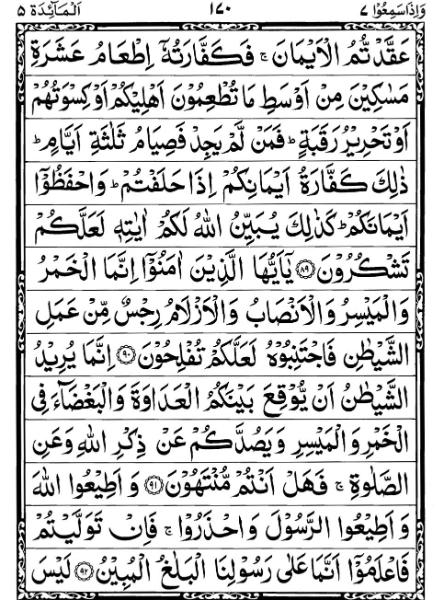 وَاِذَاسَمِعُوۡا ٧ ١٧٠ اَلۡمَآئِدَة ٥
عَقَّدْتُّمُ الْاَيْمَانَ ۚ فَكَفَّارَتُهٗۤ اِطْعَامُ عَشَرَةِ
مَسٰكِيْنَ مِنْ اَوْسَطِ مَا تُطْعِمُوْنَ اَهْلِيْكُمْ اَوْ كِسْوَتُهُمْ
اَوْ تَحْرِيْرُ رَقَبَةٍ ؕ فَمَنْ لَّمْ يَجِدْ فَصِيَامُ ثَلٰثَةِ اَيَّامٍ ؕ
ذٰلِكَ كَفَّارَةُ اَيْمَانِكُمْ اِذَا حَلَفْتُمْ ؕ وَاحْفَظُوْۤا
اَيْمَانَكُمْ ؕ كَذٰلِكَ يُبَيِّنُ اللّٰهُ لَكُمْ اٰيٰتِهٖ لَعَلَّكُمْ
تَشْكُرُوْنَ ﴿٨٩﴾ يٰۤاَيُّهَا الَّذِيْنَ اٰمَنُوْۤا اِنَّمَا الْخَمْرُ
وَالْمَيْسِرُ وَالْاَنْصَابُ وَالْاَزْلَامُ رِجْسٌ مِّنْ عَمَلِ
الشَّيْطٰنِ فَاجْتَنِبُوْهُ لَعَلَّكُمْ تُفْلِحُوْنَ ﴿٩٠﴾ اِنَّمَا يُرِيْدُ
الشَّيْطٰنُ اَنْ يُّوْقِعَ بَيْنَكُمُ الْعَدَاوَةَ وَالْبَغْضَآءَ فِى
الْخَمْرِ وَالْمَيْسِرِ وَيَصُدَّكُمْ عَنْ ذِكْرِ اللّٰهِ وَعَنِ
الصَّلٰوةِ ۚ فَهَلْ اَنْتُمْ مُّنْتَهُوْنَ ﴿٩١﴾ وَاَطِيْعُوا اللّٰهَ
وَاَطِيْعُوا الرَّسُوْلَ وَاحْذَرُوْا ۚ فَاِنْ تَوَلَّيْتُمْ
فَاعْلَمُوْۤا اَنَّمَا عَلٰى رَسُوْلِنَا الْبَلٰغُ الْمُبِيْنُ ﴿٩٢﴾ لَيْسَ